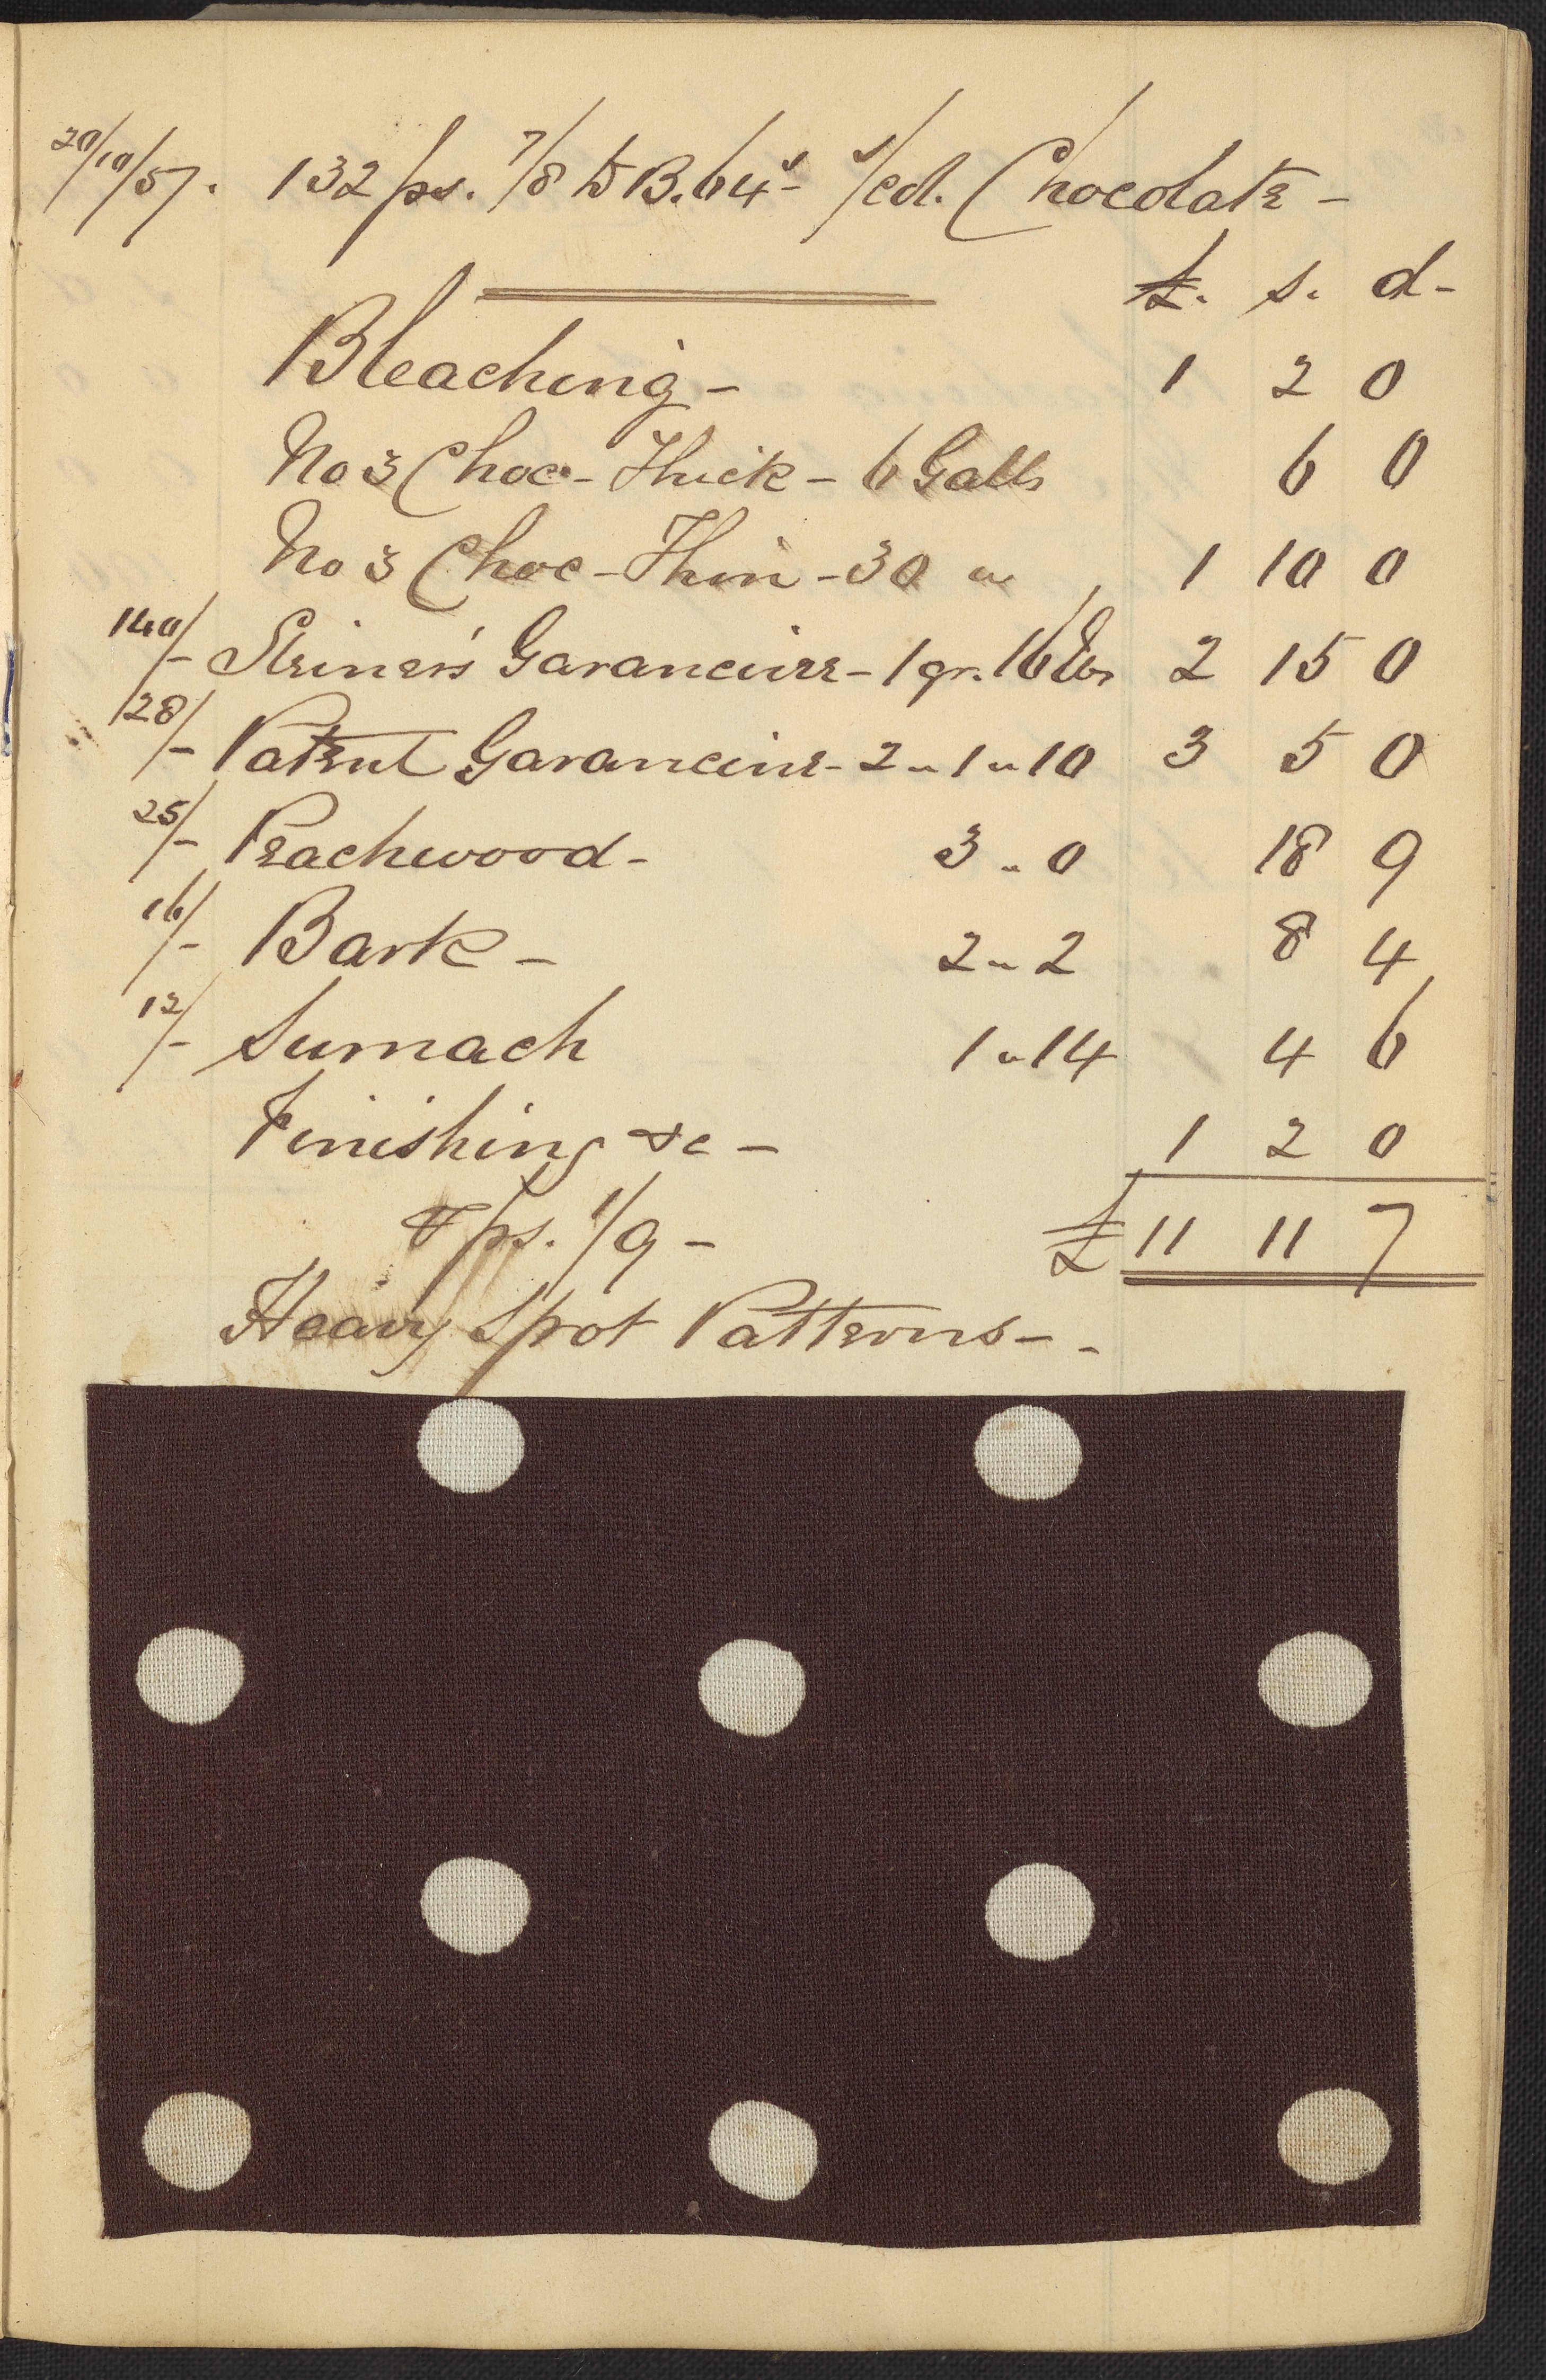 20/10/57. 132 ps. 7/8 B. 64s /cd. Chocolate -
£. s. d -
Bleaching - 1 2 0
No 3 Choc - Thick - 6 Galls 6 0
No 3 Choc - Thin - 30 " 1 10 0
140/- Steiner's Garancine - 1 qr. 16 lbs 2 15 0
28/- Patent Garancine - 2 " 1 " 10 3 5 0
25/- Peachwood - 3 " 0 18 9
16/- Bark - 2 " 2 8 4
12/- Sumach 1 " 14 4 6
Finishing &c - 1 2 0
ps. 1/9 - £ 11 11 7
Heavy Spot Patterns - -